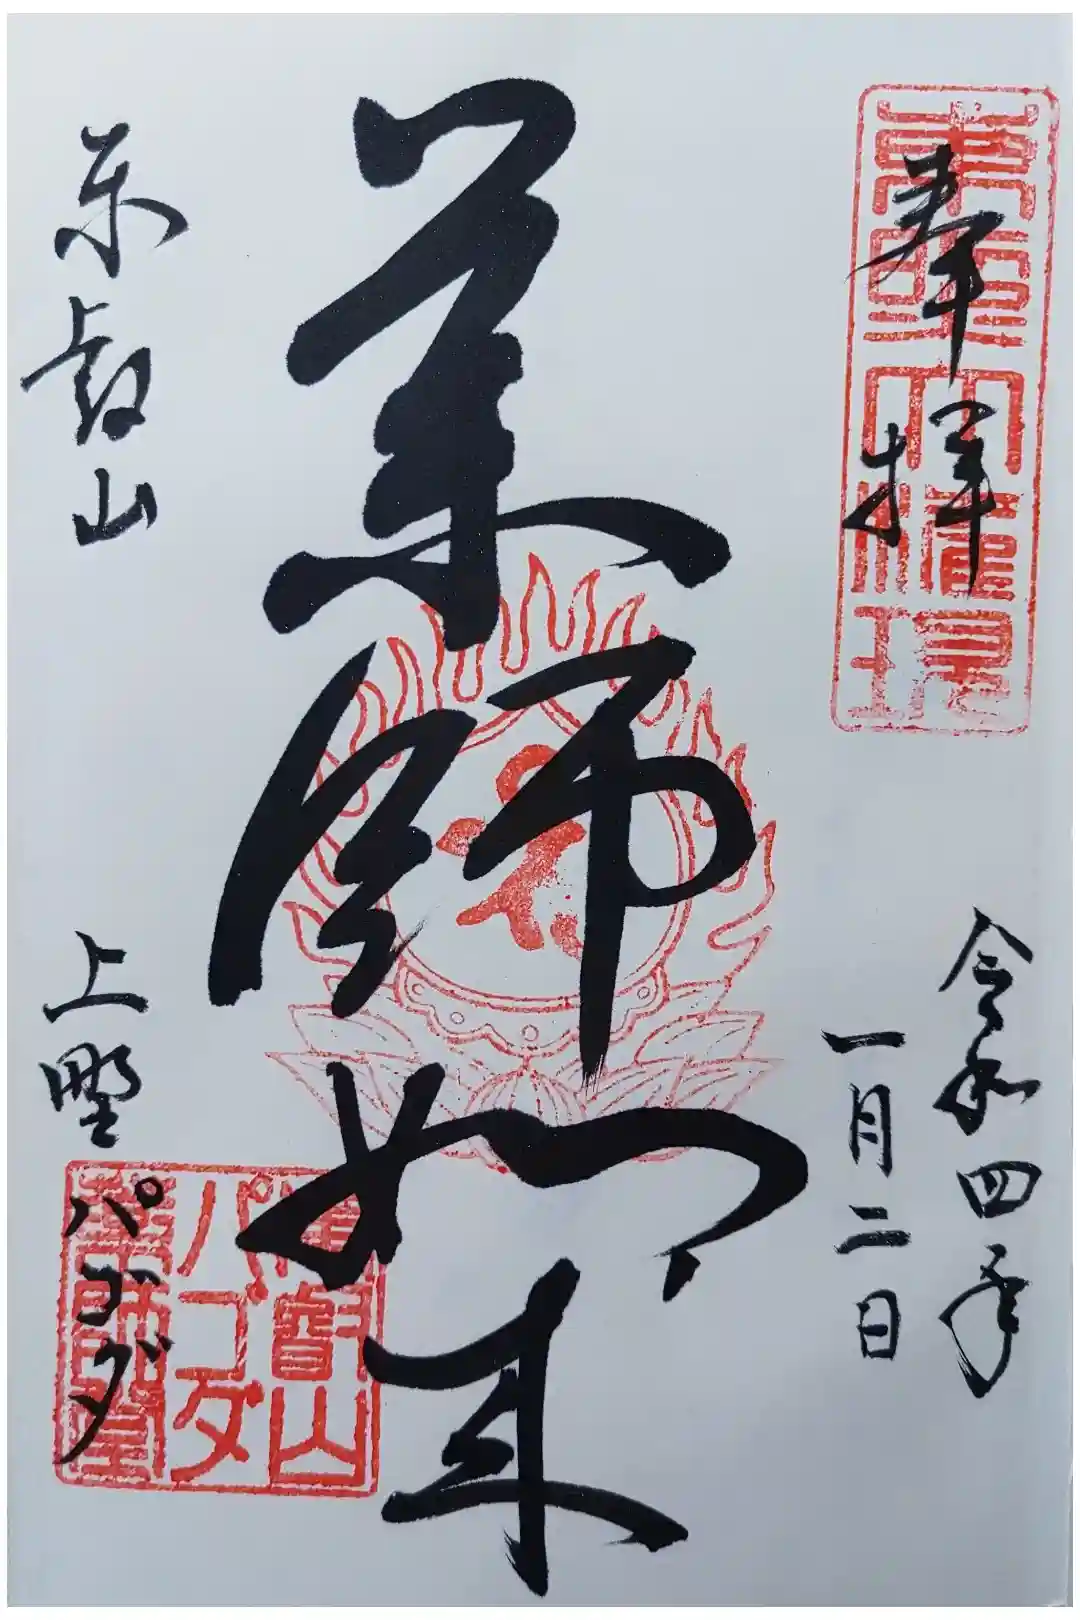 奉拝
令和四年
一月二日
薬師如来
東叡山
上野パゴダ
東照大権現
東叡山
パゴダ
薬師堂